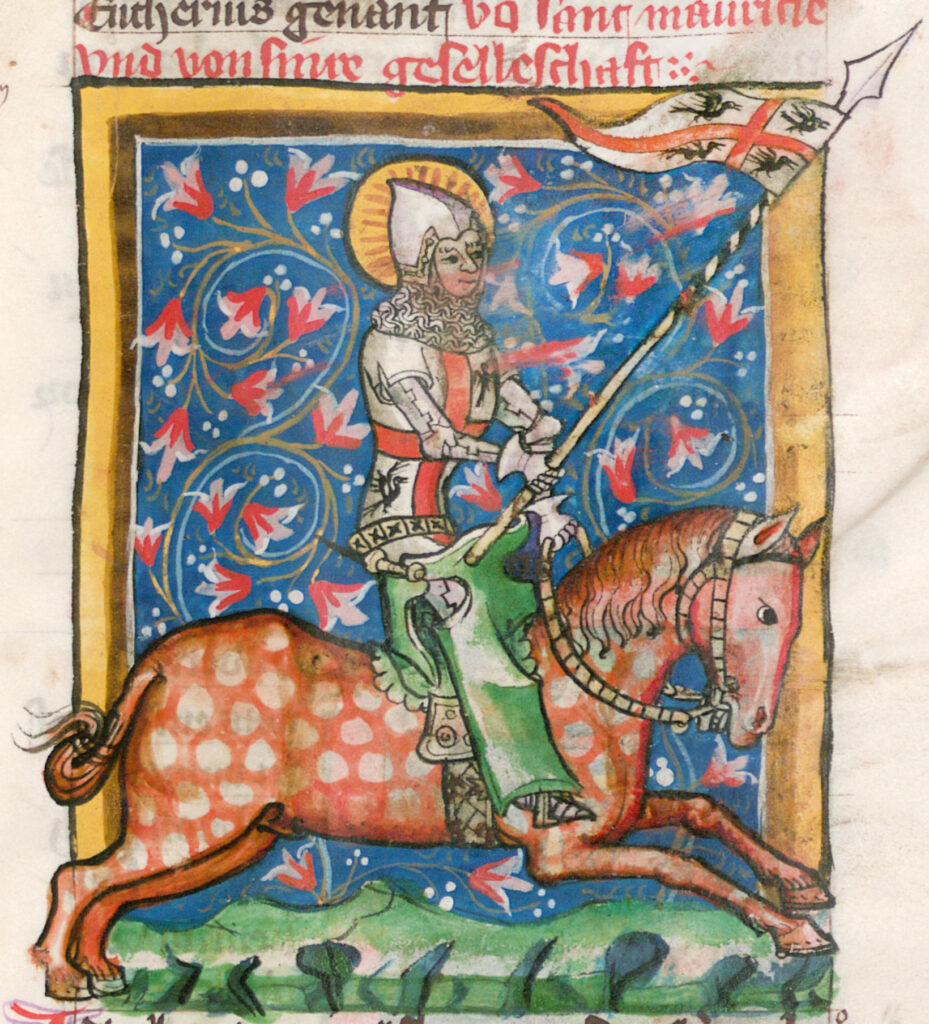 Eucherius genant vo sant mauricie
vnd von sinre geselleschaft